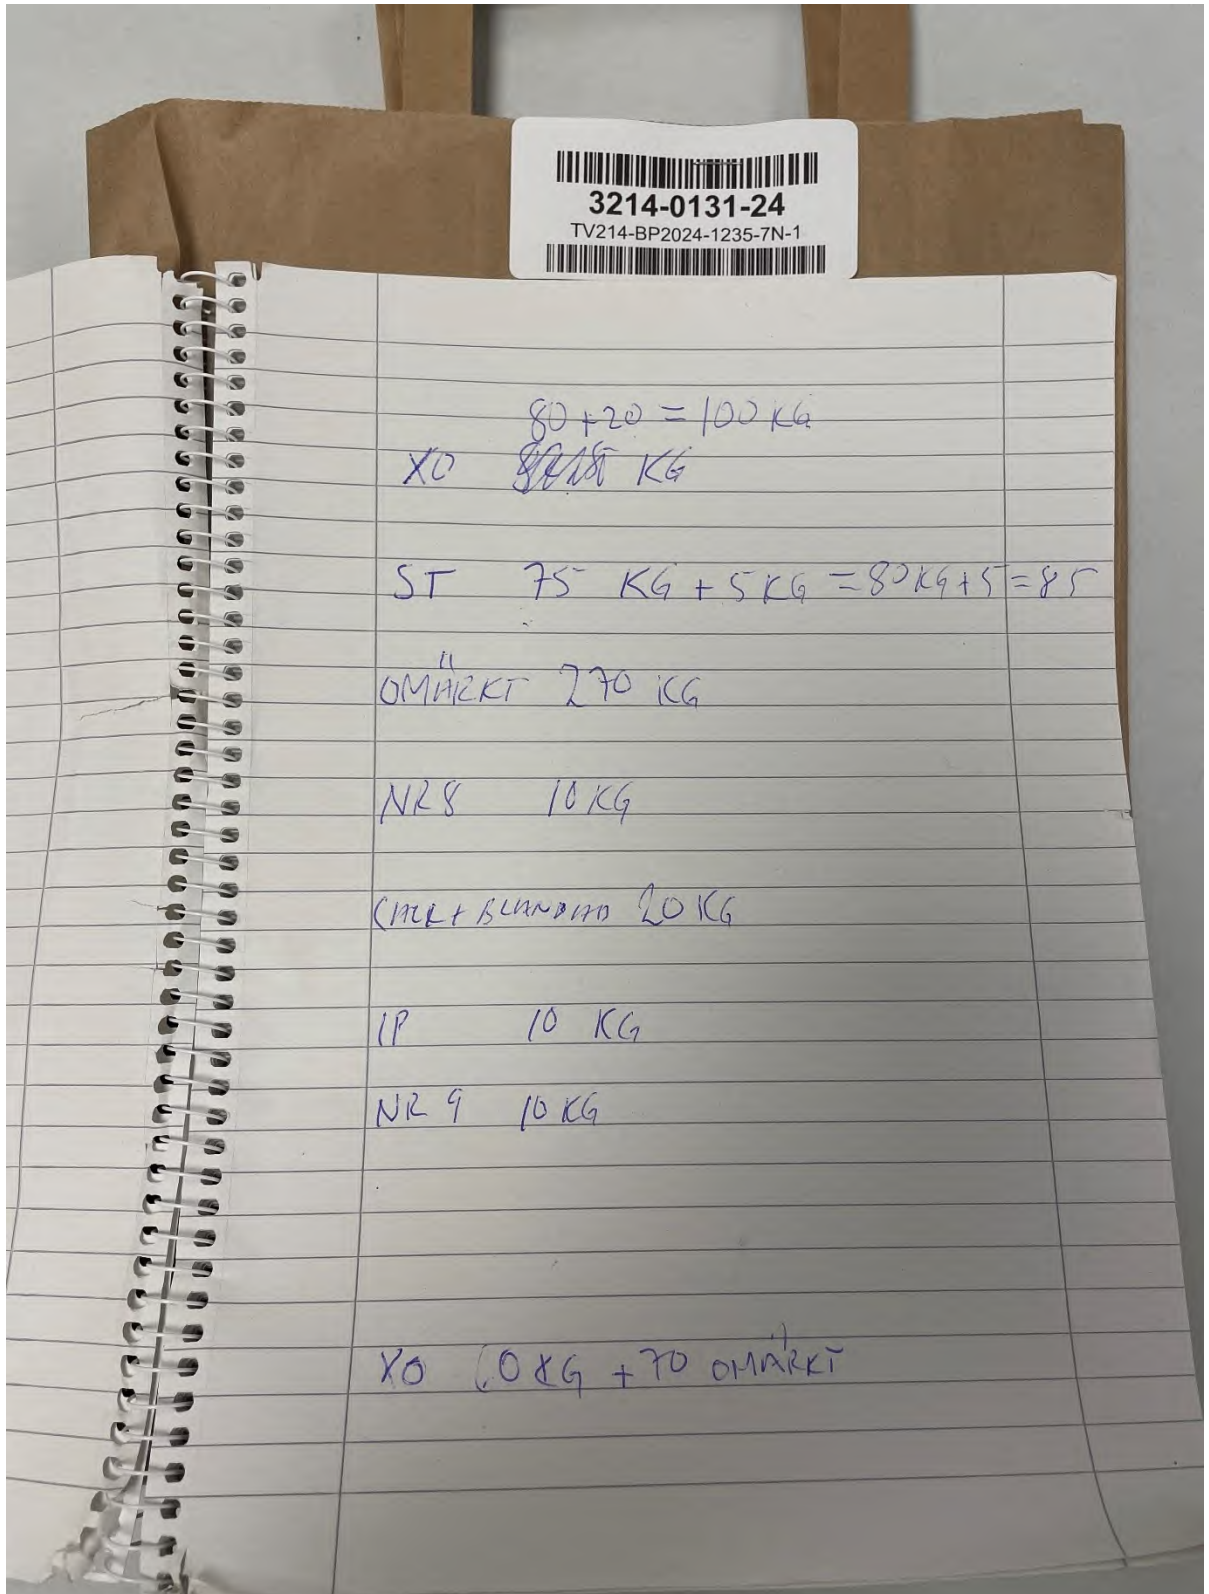 3214-0131-24
TV214-BP2024-1235-7N-1
80+20 = 100 KG
XO KG
ST 75 KG + 5 KG = 80 KG + 5 = 85
OMÄRKT 270 KG
NR 8 10 KG
BLANDAD 20 KG
IP 10 KG
NR 9 10 KG
XO KG + 70 OMÄRKT